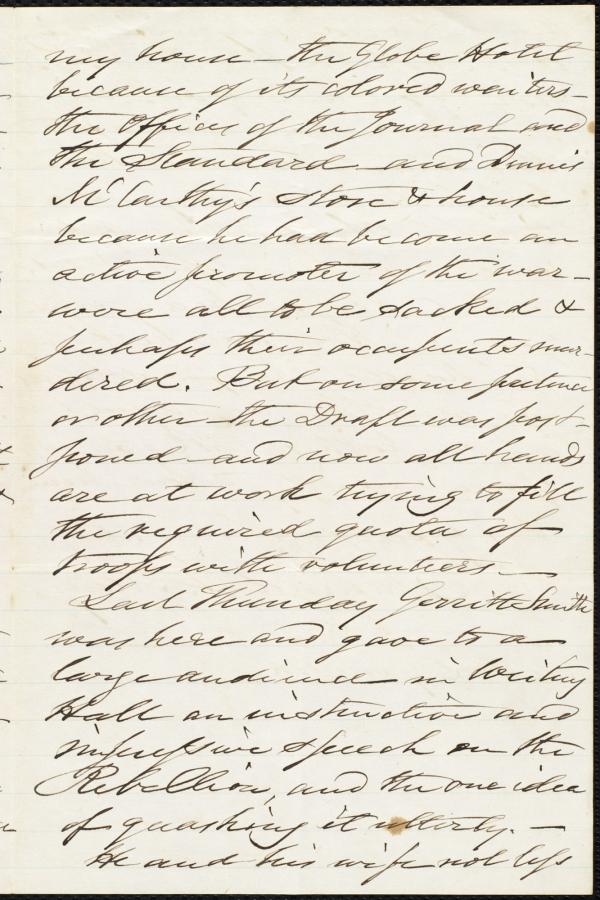 my house – the Globe Hotel
because of its colored waiters –
the Offices of the Journal and
the Standard – and Dennis
McCarthy's store & house
because he had become an
active promoter of the war –
were all to be sacked &
perhaps their occupents mur-
dered. But on some pretence
or other – the Draft was post-
poned – and now all hands
are at work trying to fill
the required quota of
troops with volunteers –
Last Thursday Gerritt Smith
was here and gave to a
large audience in Weiting
Hall an instructive and
impressive speech on the
Rebellion, and the one idea
of quashing it utterly. –
He and his wife not less